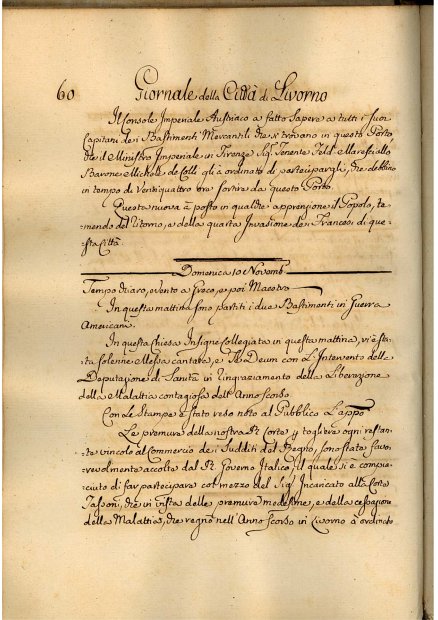 60 Giornale della Città di Livorno
Il Console Imperiale Austriaco a fatto Sapere a tutti i suoi
Capitani de i Bastimenti Mercantili che si trovano in questo Porto
che il Ministro Imperiale in Firenze Sig. Tenente Feld Maresciallo
Barone Michele de Colli gli à ordinato di parteciparghi, che debbino
in tempo di Ventiquattro ore sortire da questo Porto.
Questa nuova à posto in qualche apprensione il Popolo, te-
mendo del ritorno, e della quarta Invasione de Francesi di que-
sta Città.
Domenica 10 Novemb.
Tempo chiaro, e vento a Greco, e poi Maestro
In questa mattina sono partiti i due Bastimenti in Guerra
Americani.
In questa chiesa Insigne Collegiata in questa mattina, vi è sta-
ta solenne Messa cantata, e Te Deum con L'Intervento della
Deputazione di Sanità in ringraziamento della Liberazione
della Malattia contagiosa dell'Anno scorso.
Con Le Stampe è stato reso noto al Pubblico L'appo
Le premure della nostra R. Corte p togliere ogni restan-
te vincolo al Commercio de i Sudditi del Regno, sono state favo-
revolmente accolte dal R. Governo Italico, il quale si è compia-
ciuto di far partecipare col mezzo del Sig. Incaricato alla Corte
Tassoni, che in vista delle premure medesime, e della cessazione
della Malattia, che regnò nell'Anno scorso in Livorno à ordinato